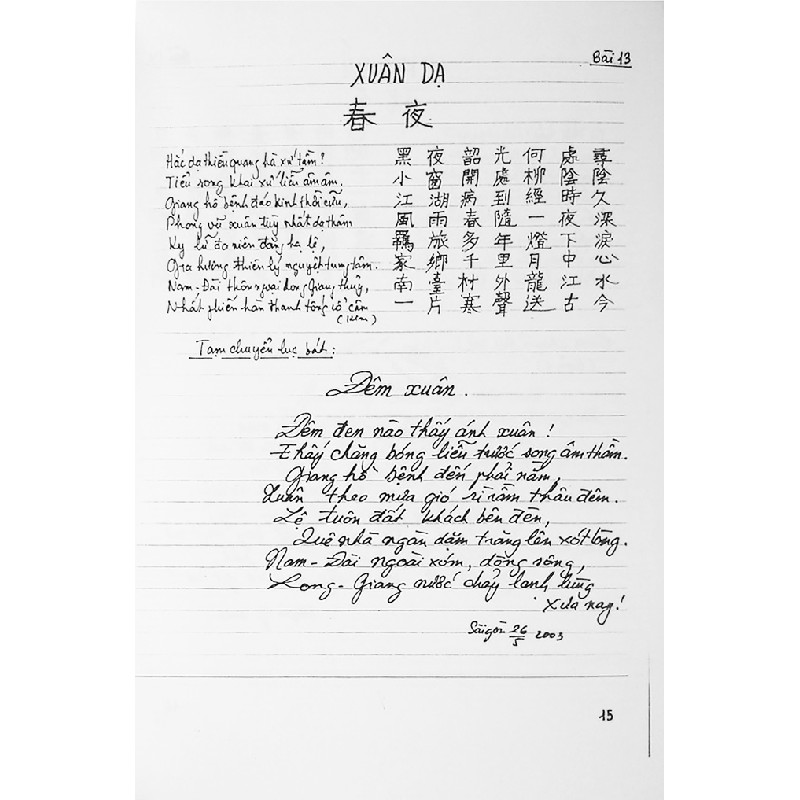 Bài 13
XUÂN DẠ
春 夜
Hắc dạ thiều quang hà xứ tầm?
Tiểu song khai xứ liễu âm âm.
Giang hồ bệnh đáo kinh thời cửu,
Phong vũ xuân tùy nhất dạ thâm
Ky lữ đa niên đăng hạ lệ,
Gia hương thiên lý nguyệt trung tâm.
Nam-Đài thôn ngoại Long Giang thủy,
Nhất phiến hàn thanh tống cổ câm
(kim)
黑 夜 韶 光 何 處 尋
小 窗 開 處 柳 陰 陰
江 湖 病 到 經 時 久
風 雨 春 隨 一 夜 深
羈 旅 多 年 燈 下 淚
家 鄉 千 里 月 中 心
南 臺 村 外 龍 江 水
一 片 寒 聲 送 古 今
Tạm chuyển lục bát:
Đêm xuân.
Đêm đen nào thấy ánh xuân!
Thấy chăng bóng liễu trước song âm thầm.
Giang hồ bệnh đến phải nằm,
Xuân theo mưa gió rì rầm thâu đêm.
Lệ tuôn đất khách bên đèn,
Quê nhà ngàn dặm trăng lên xót lòng.
Nam-Đài ngoài xóm, dòng sông,
Long-Giang nước chảy lạnh lùng
Xưa nay!
Sàigòn 26/5 2003
15